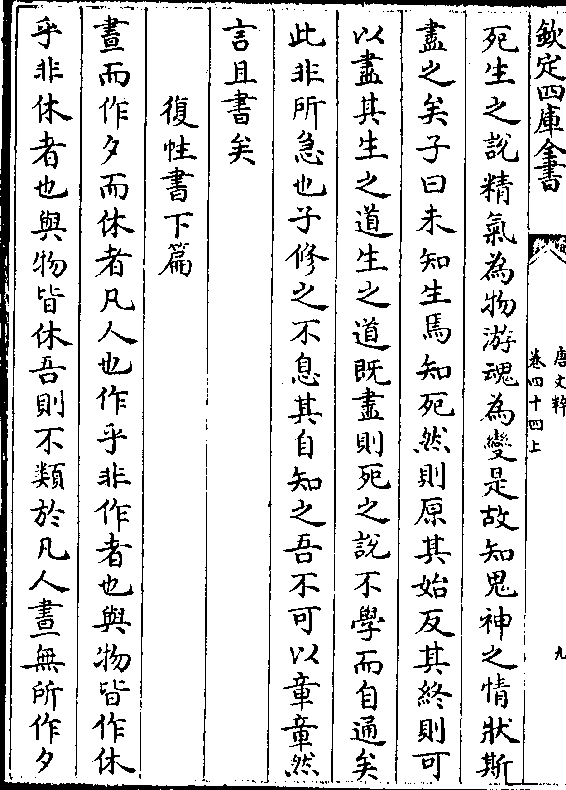 欽定四庫全書
唐文粹
卷四十四上
九
死生之說精氣為物游魂為變是故知鬼神之情狀斯
盡之矣子曰未知生焉知死然則原其始反其終則可
以盡其生之道生之道既盡則死之說不學而自通矣
此非所急也子修之不息其自知之吾不可以章章然
言且書矣
復性書下篇
晝而作夕而休者凡人也作乎非作者也與物皆作休
乎非休者也與物皆休吾則不類於凡人晝無所作夕